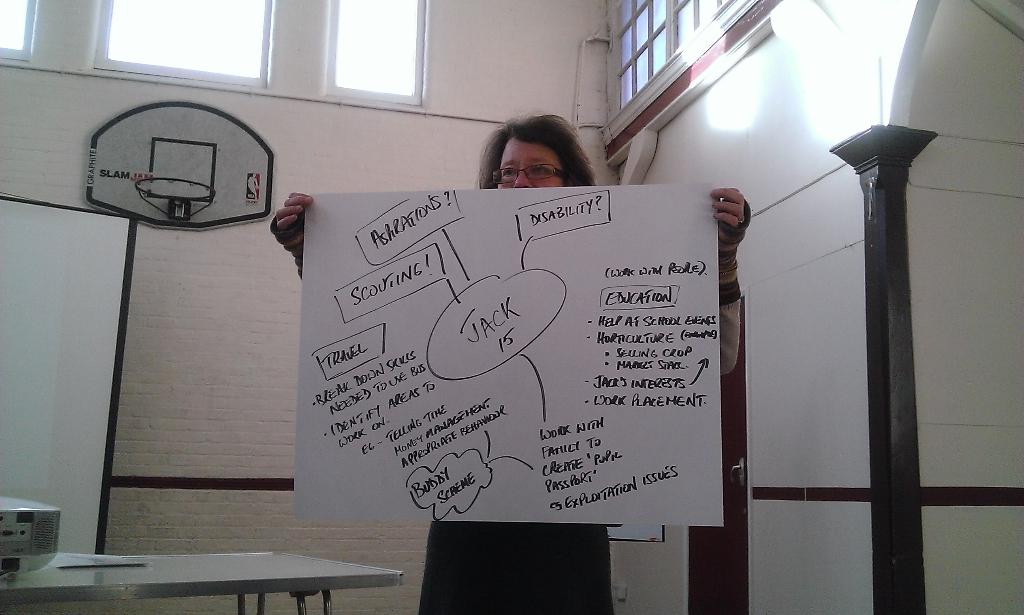 GRAPHITE
SLAMJAM
NBA
ASPIRATIONS?
DISABILITY?
SCOUTING!
JACK
15
TRAVEL
- BREAK DOWN SKILLS
NEEDED TO USE BUS
- IDENTIFY AREAS TO
WORK ON.
EG - TELLING TIME
MONEY MANAGEMENT
APPROPRIATE BEHAVIOUR
BUDDY
SCHEME
(WORK WITH PEOPLE).
EDUCATION
- HELP AT SCHOOL EVENTS
- HORTICULTURE
• SELLING CROP
• MARKET STALL
- JACK'S INTERESTS
- WORK PLACEMENT.
WORK WITH
FAMILY TO
CREATE 'PUPIL
PASSPORT'
eg EXPLOITATION ISSUES